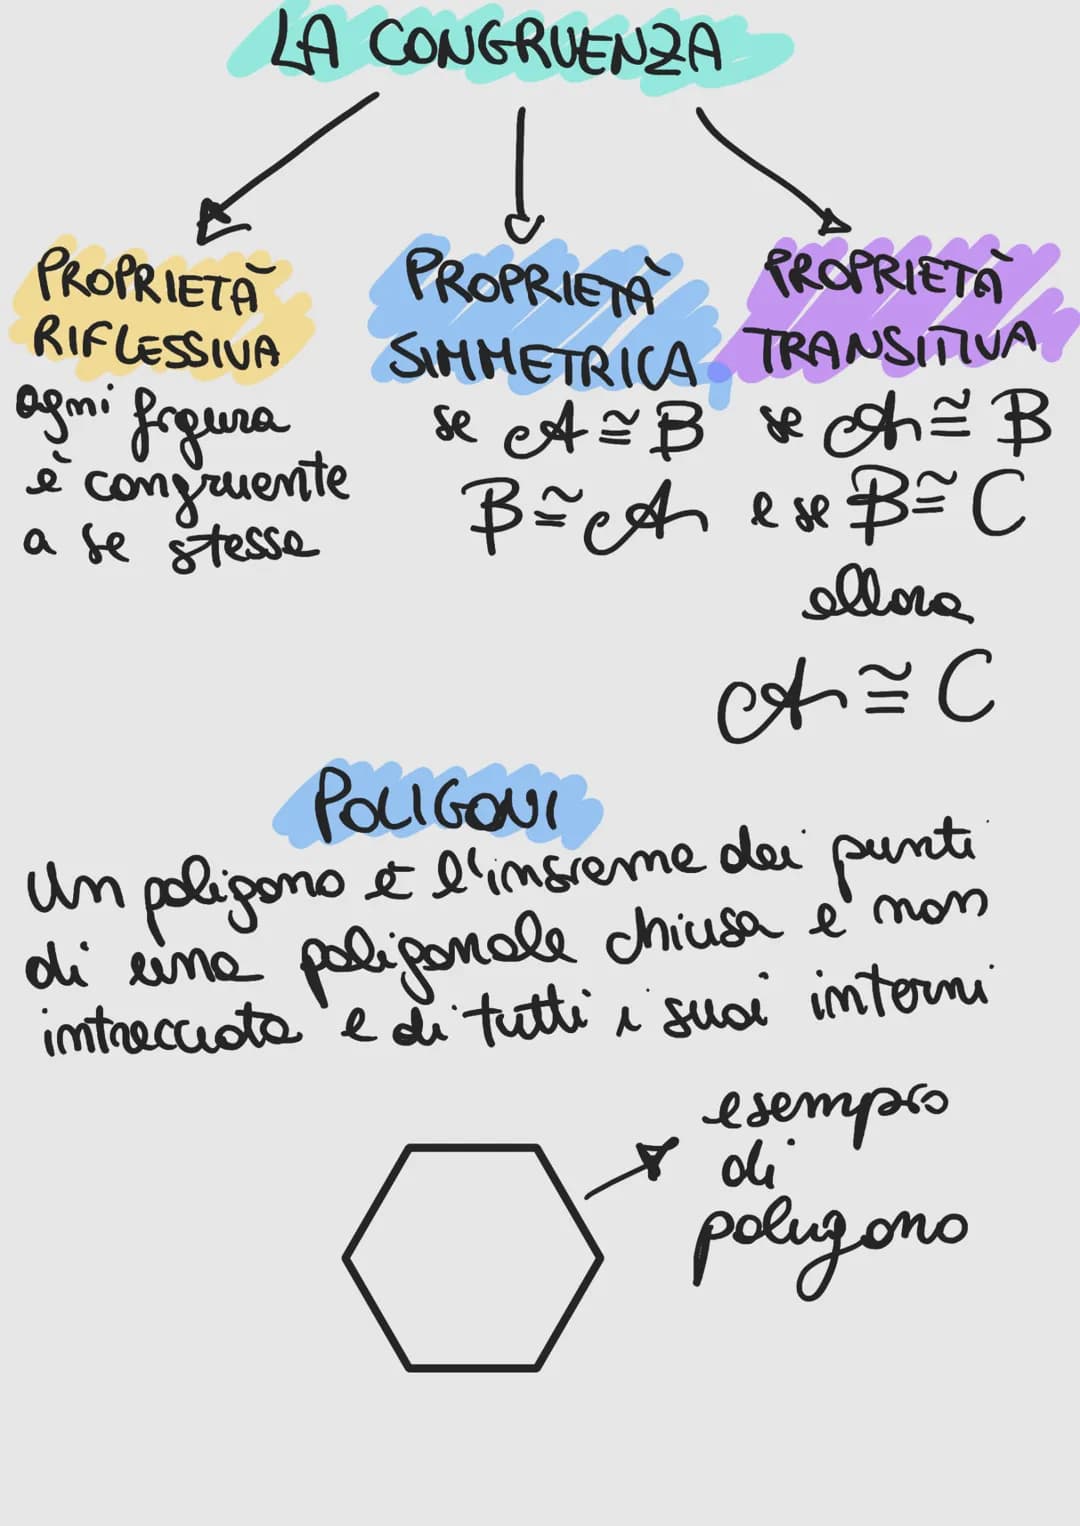 LA CONGRUENZA
PROPRIETÀ
RIFLESSIVA
ogni figura
è congruente
a se stessa
PROPRIETÀ
SIMMETRICA
se A ≅ B
B ≅ A
PROPRIETÀ
TRANSITIVA
se A ≅ B
e se B ≅ C
allora
A ≅ C
POLIGONI
Un poligono è l'insieme dei punti
di una poligonale chiusa e non
intrecciata e di tutti i suoi interni
esempio
di
poligono